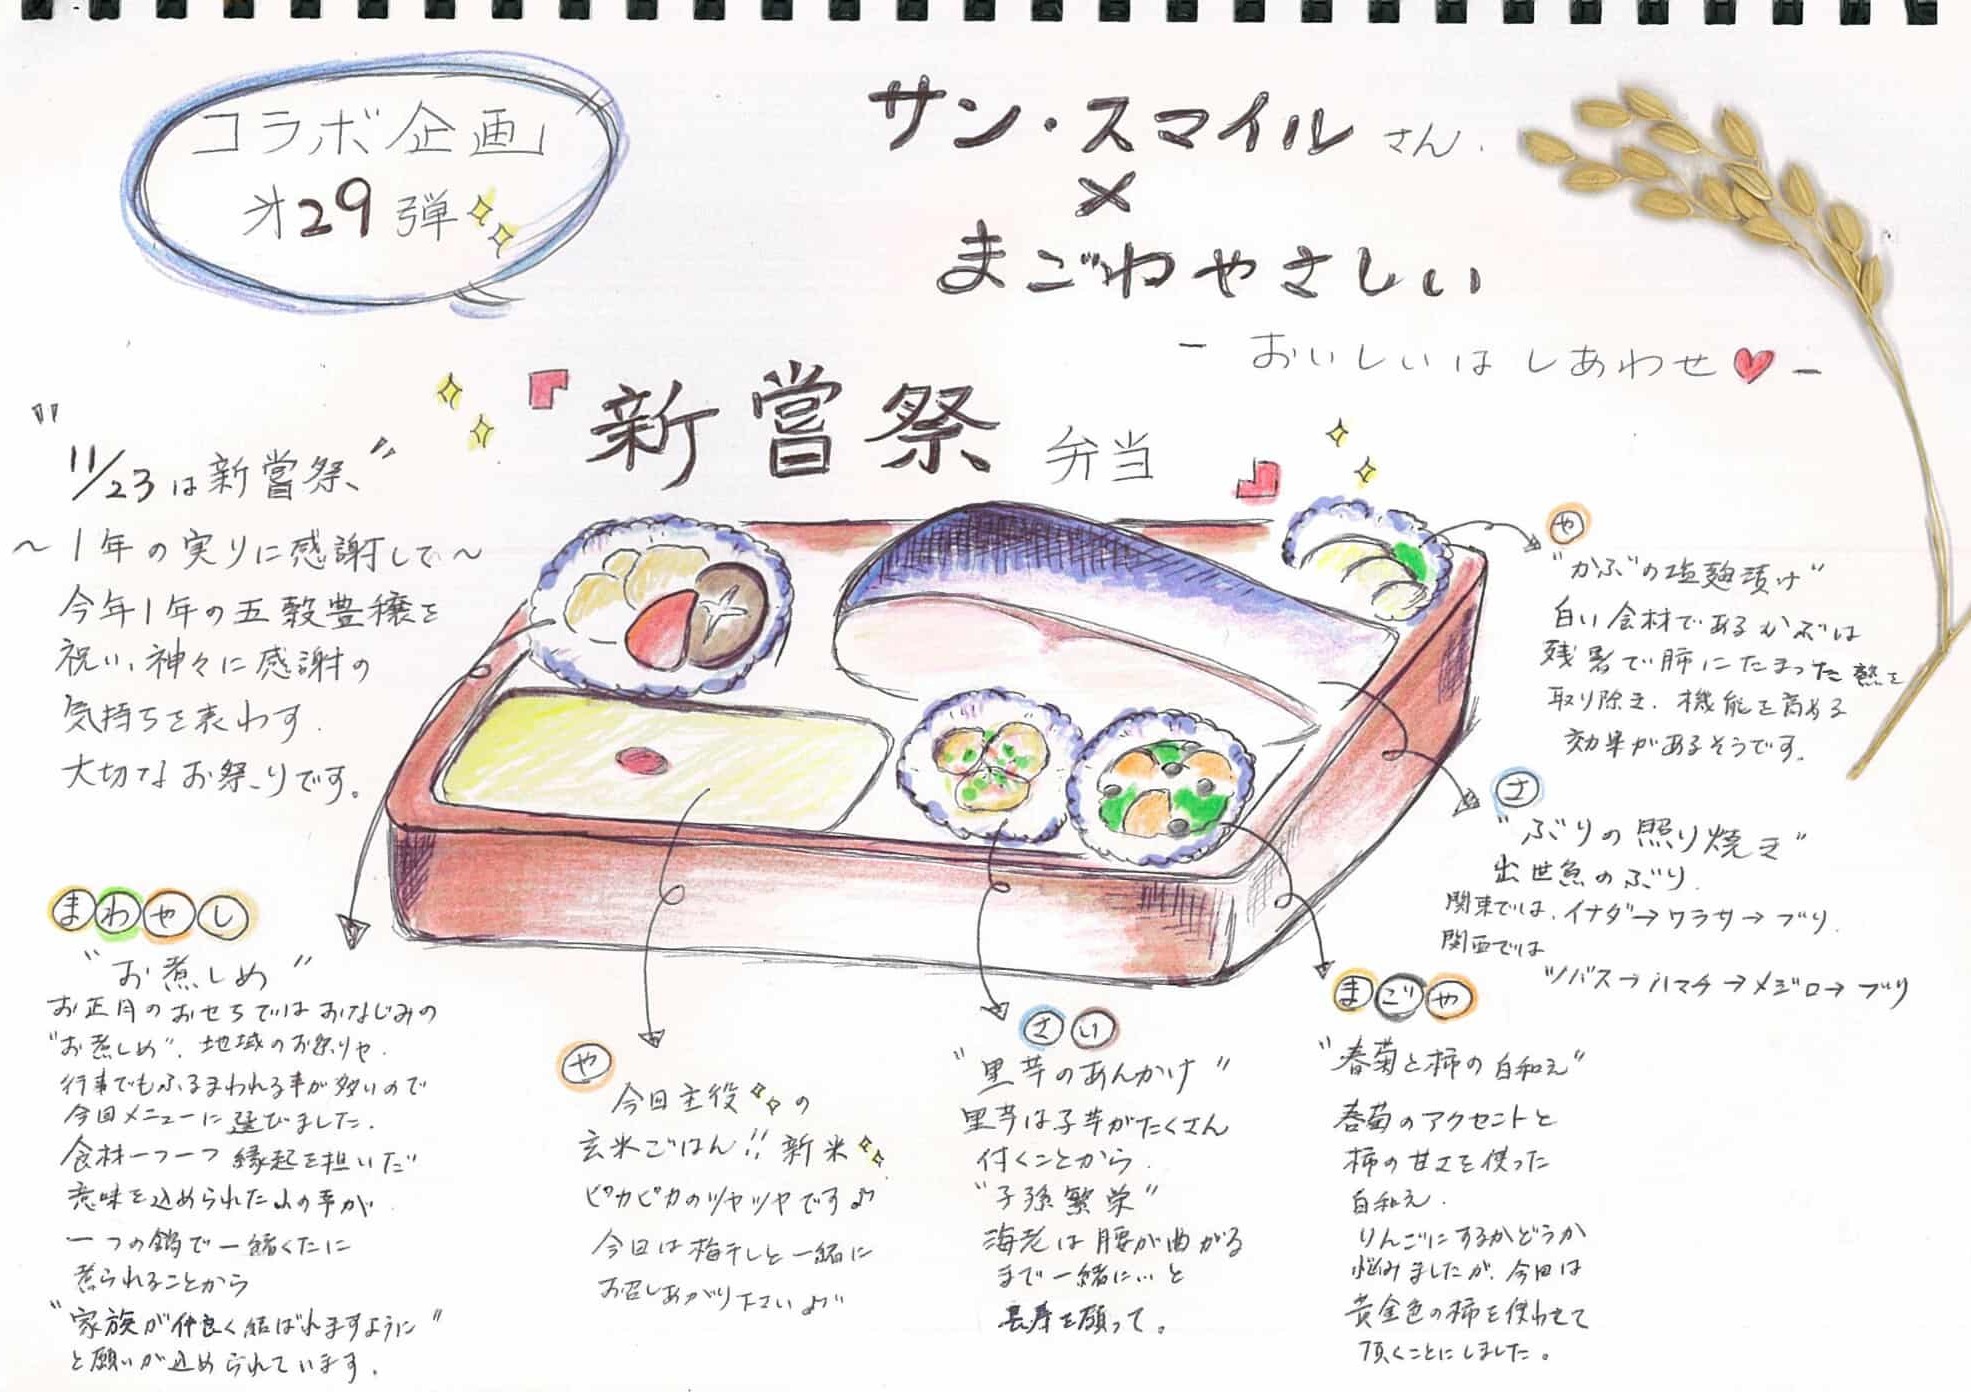 コラボ企画
才29弾
サン・スマイル さん
×
まごわやさしい
- おいしいは しあわせ♥ -
『新嘗祭 弁当』
"11/23は新嘗祭"
～1年の実りに感謝して～
今年1年の五穀豊穣を
祝い、神々に感謝の
気持ちを表わす
大切なお祭りです。
や
"かぶの塩麹漬け"
白い食材であるかぶは
残暑で肺にたまった熱を
取り除き、機能を高める
効果があるそうです。
さ
"ぶりの照り焼き"
出世魚のぶり
関東では、イナダ→ワラサ→ブリ
関西では
ツバス→ハマチ→メジロ→ブリ
まわやし
"お煮しめ"
お正月のおせちではおなじみの
"お煮しめ"、地域のお祭りや
行事でもふるまわれる事が多いので
今回メニューに選びました。
食材一つ一つ縁起を担いだ
意味を込められた山の幸が
一つの鍋で一緒くたに
煮られることから
"家族が仲良く結ばれますように"
と願いが込められています。
や
今回主役の
玄米ごはん!!新米
ピカピカのツヤツヤです♪
今日は梅干しと一緒に
お召しあがり下さい♪
さい
"里芋のあんかけ"
里芋は子芋がたくさん
付くことから
"子孫繁栄"
海老は腰が曲がる
まで一緒にいと
長寿を願って。
まごや
"春菊と柿の白和え"
春菊のアクセントと
柿の甘さを使った
白和え
りんごにするかどうか
悩みましたが、今回は
黄金色の柿を使わせて
頂くことにしました。